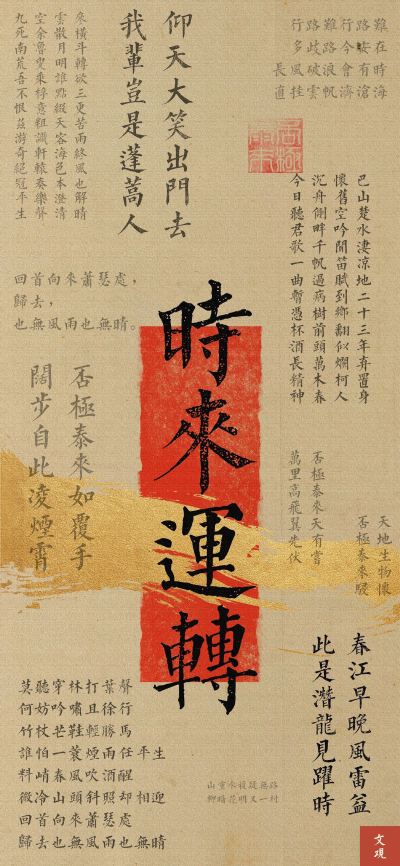 行路難行路難
多歧路今安在
長風破浪會有時
直桂雲帆濟滄海
仰天大笑出門去
我輩豈是蓬蒿人
來橫斗轉欲三更苦雨終風也解晴
雲散月明誰點綴天容海色本澄清
空余魯叟乘桴意粗識軒轅奏樂聲
九死南荒吾不恨茲游奇絕冠平生
巴山楚水淒涼地二十三年弃置身
懷舊空吟聞笛賦到鄉翻似爛柯人
沉舟側畔千帆過病樹前頭萬木春
今日聽君歌一曲暫憑杯酒長精神
回首向來蕭瑟處，
歸去，
也無風雨也無晴。
時來運轉
否極泰來如覆手
闊步自此凌煙霄
天地生物懷
否極泰來
否極泰來天有嘗
萬里高飛翼先伏
春江早晚風雷益
此是潛龍見躍時
莫聽穿林打葉聲
何妨吟嘯且徐行
竹杖芒鞋輕勝馬
誰怕一蓑煙雨任平生
料峭春風吹酒醒
微冷山頭斜照却相迎
回首向來蕭瑟處
歸去也無風雨也無晴
山重水複疑無路
柳暗花明又一村
文現